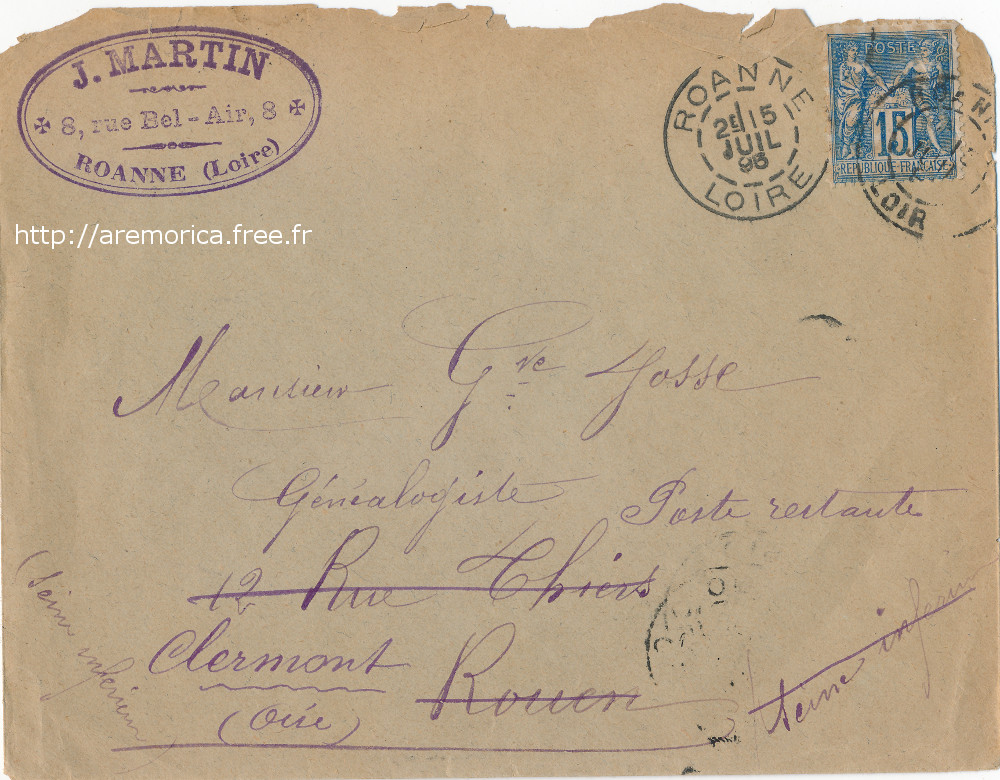 J. MARTIN
8, rue Bel-Air, 8
ROANNE (Loire)
ROANNE
2E 15
JUIL
95
LOIRE
POSTE
15
REPUBLIQUE FRANÇAISE
LOIR
http://aremorica.free.fr
Monsieur Gve Gosse
Généalogiste Poste restante
12 Rue Thiers
Clermont Rouen
(Oise)
Seine inférieu
(Seine inférieure)